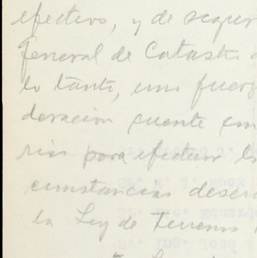 efectivo, y de segur
General de Catastro
lo tanto, una fuerz
deración cuente con
rios para efectuar l
cunstancias descri
la Ley de Terrenos